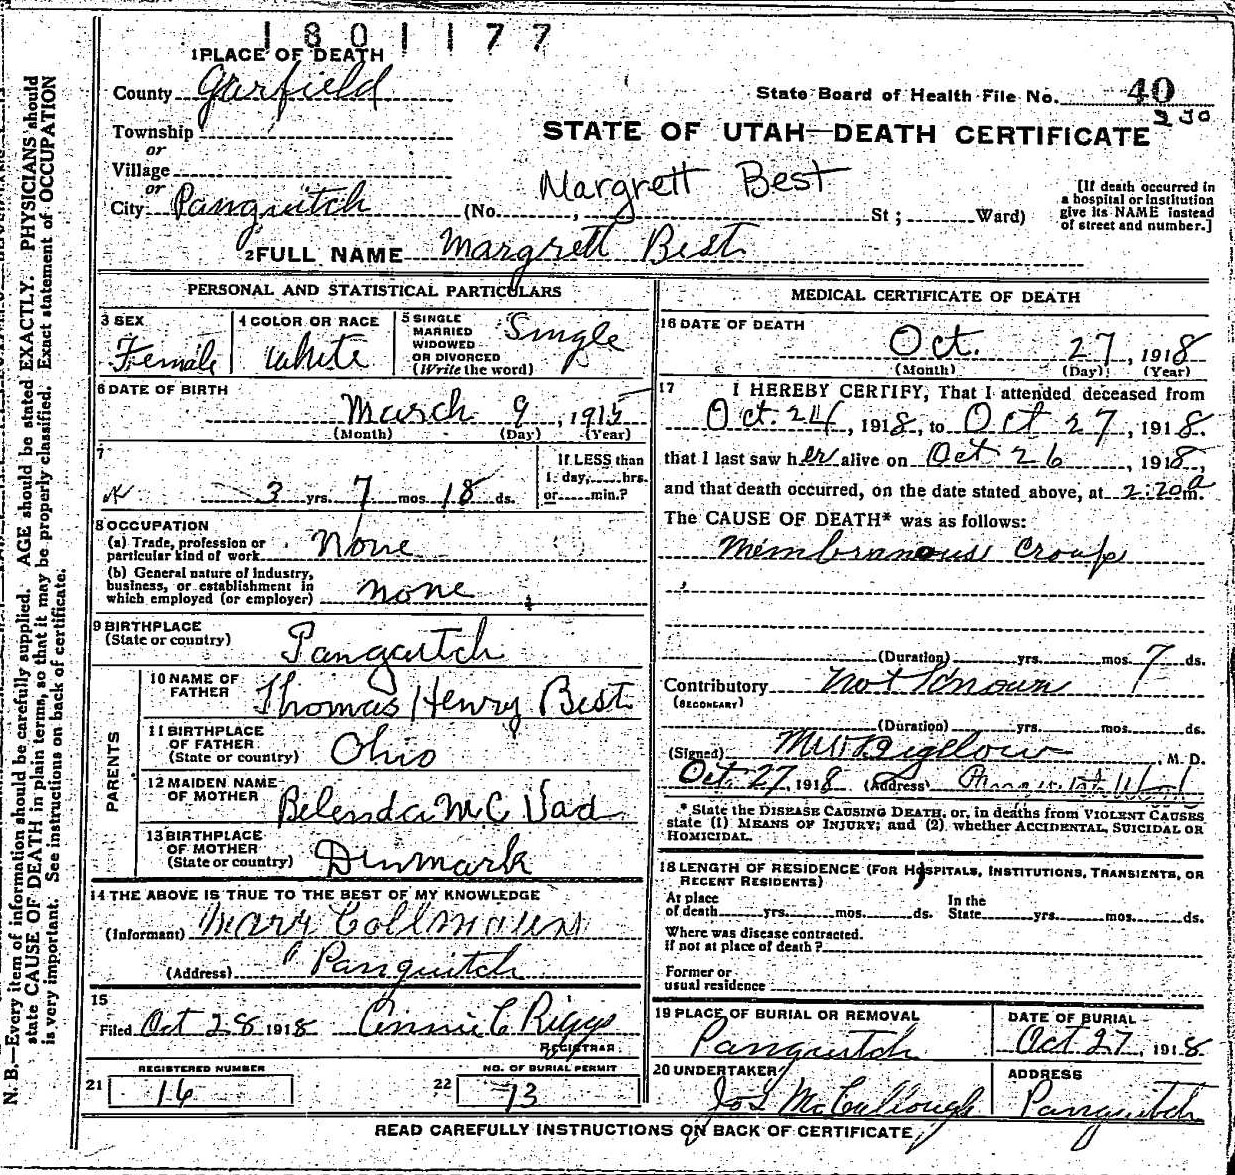 1801177
1 PLACE OF DEATH
County Garfield
State Board of Health File No. 40
330
Township
or
STATE OF UTAH—DEATH CERTIFICATE
Village
or
Margrett Best
City Panguitch (No. , St ; Ward)
[If death occurred in
a hospital or institution
give its NAME instead
of street and number.]
2 FULL NAME Margrett Best
PERSONAL AND STATISTICAL PARTICULARS
3 SEX
Female
4 COLOR OR RACE
White
5 SINGLE
MARRIED
WIDOWED
OR DIVORCED
(Write the word)
Single
6 DATE OF BIRTH
March 9, 1915
(Month) (Day) (Year)
7
3 yrs. 7 mos. 18 ds.
If LESS than
1 day, hrs.
or min.?
8 OCCUPATION
(a) Trade, profession or
particular kind of work None
(b) General nature of industry,
business, or establishment in
which employed (or employer) none
9 BIRTHPLACE
(State or country) Pangutch
PARENTS
10 NAME OF
FATHER Thomas Henry Best
11 BIRTHPLACE
OF FATHER
(State or country) Ohio
12 MAIDEN NAME
OF MOTHER Belenda Mc Vad
13 BIRTHPLACE
OF MOTHER
(State or country) Dinmark
14 THE ABOVE IS TRUE TO THE BEST OF MY KNOWLEDGE
(Informant) Mary
(Address) Panguitch
15
Filed Oct 28 1918 Annie C Riggs
REGISTRAR
REGISTERED NUMBER
21 16
NO. OF BURIAL PERMIT
22 73
MEDICAL CERTIFICATE OF DEATH
16 DATE OF DEATH
Oct. 27, 1918
(Month) (Day) (Year)
17 I HEREBY CERTIFY, That I attended deceased from
Oct. 24, 1918, to Oct 27, 1918.
that I last saw her alive on Oct 26, 1918,
and that death occurred, on the date stated above, at 2:20a m.
The CAUSE OF DEATH* was as follows:
Membranous Croup
(Duration) yrs. mos. 7 ds.
Contributory Not Known
(SECONDARY)
(Duration) yrs. mos. ds.
(Signed) M W Bigelow, M. D.
Oct. 27, 1918 (Address) Panguitch Utah
*State the DISEASE CAUSING DEATH, or, in deaths from VIOLENT CAUSES
state (1) MEANS OF INJURY; and (2) whether ACCIDENTAL, SUICIDAL OR
HOMICIDAL.
18 LENGTH OF RESIDENCE (FOR HOSPITALS, INSTITUTIONS, TRANSIENTS, OR
RECENT RESIDENTS)
At place
of death yrs. mos. ds.
In the
State yrs. mos. ds.
Where was disease contracted.
if not at place of death?
Former or
usual residence
19 PLACE OF BURIAL OR REMOVAL
Panguitch
DATE OF BURIAL
Oct 27, 1918
20 UNDERTAKER
Jos McCullough
ADDRESS
Panguitch
READ CAREFULLY INSTRUCTIONS ON BACK OF CERTIFICATE
N. B.—Every item of information should be carefully supplied. AGE should be stated EXACTLY. PHYSICIANS should
state CAUSE OF DEATH in plain terms, so that it may be properly classified. Exact statement of OCCUPATION
is very important. See instructions on back of certificate.